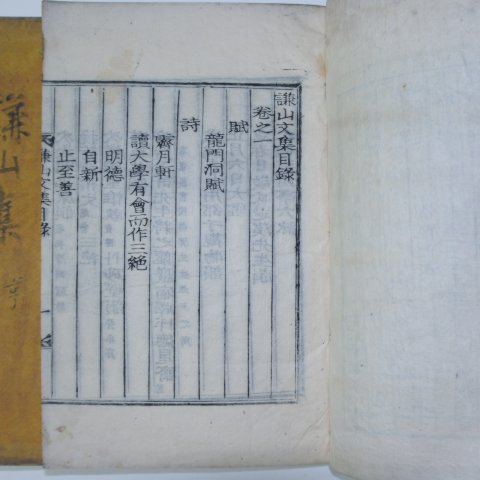 謙山文集目錄
卷之一
賦
龍門洞賦
詩
霽月軒
讀大學有會而作三絶
明德
自新
止至善
謙山文集目錄
一
謙山集